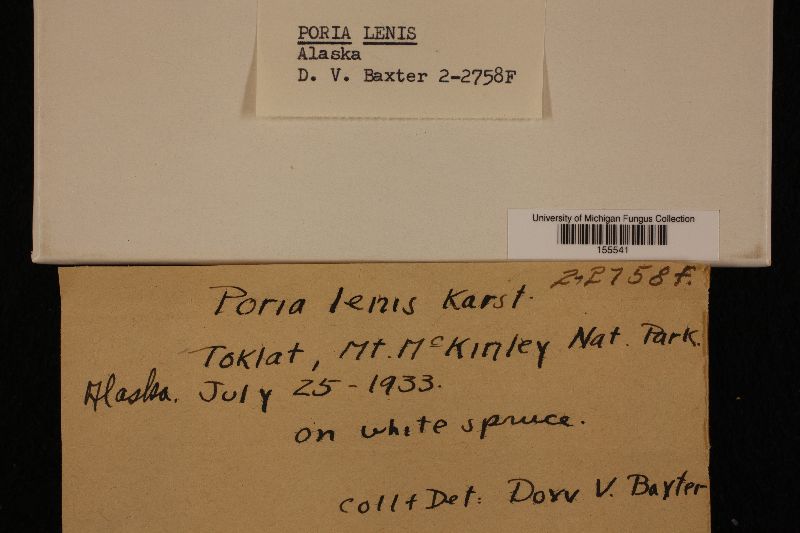 PORIA LENIS
Alaska
D. V. Baxter 2-2758F
University of Michigan Fungus Collection
155541
2-2758F.
Poria lenis Karst.
Toklat, Mt. McKinley Nat. Park.
Alaska. July 25-1933.
on white spruce.
Coll + Det: Dow V. Baxter